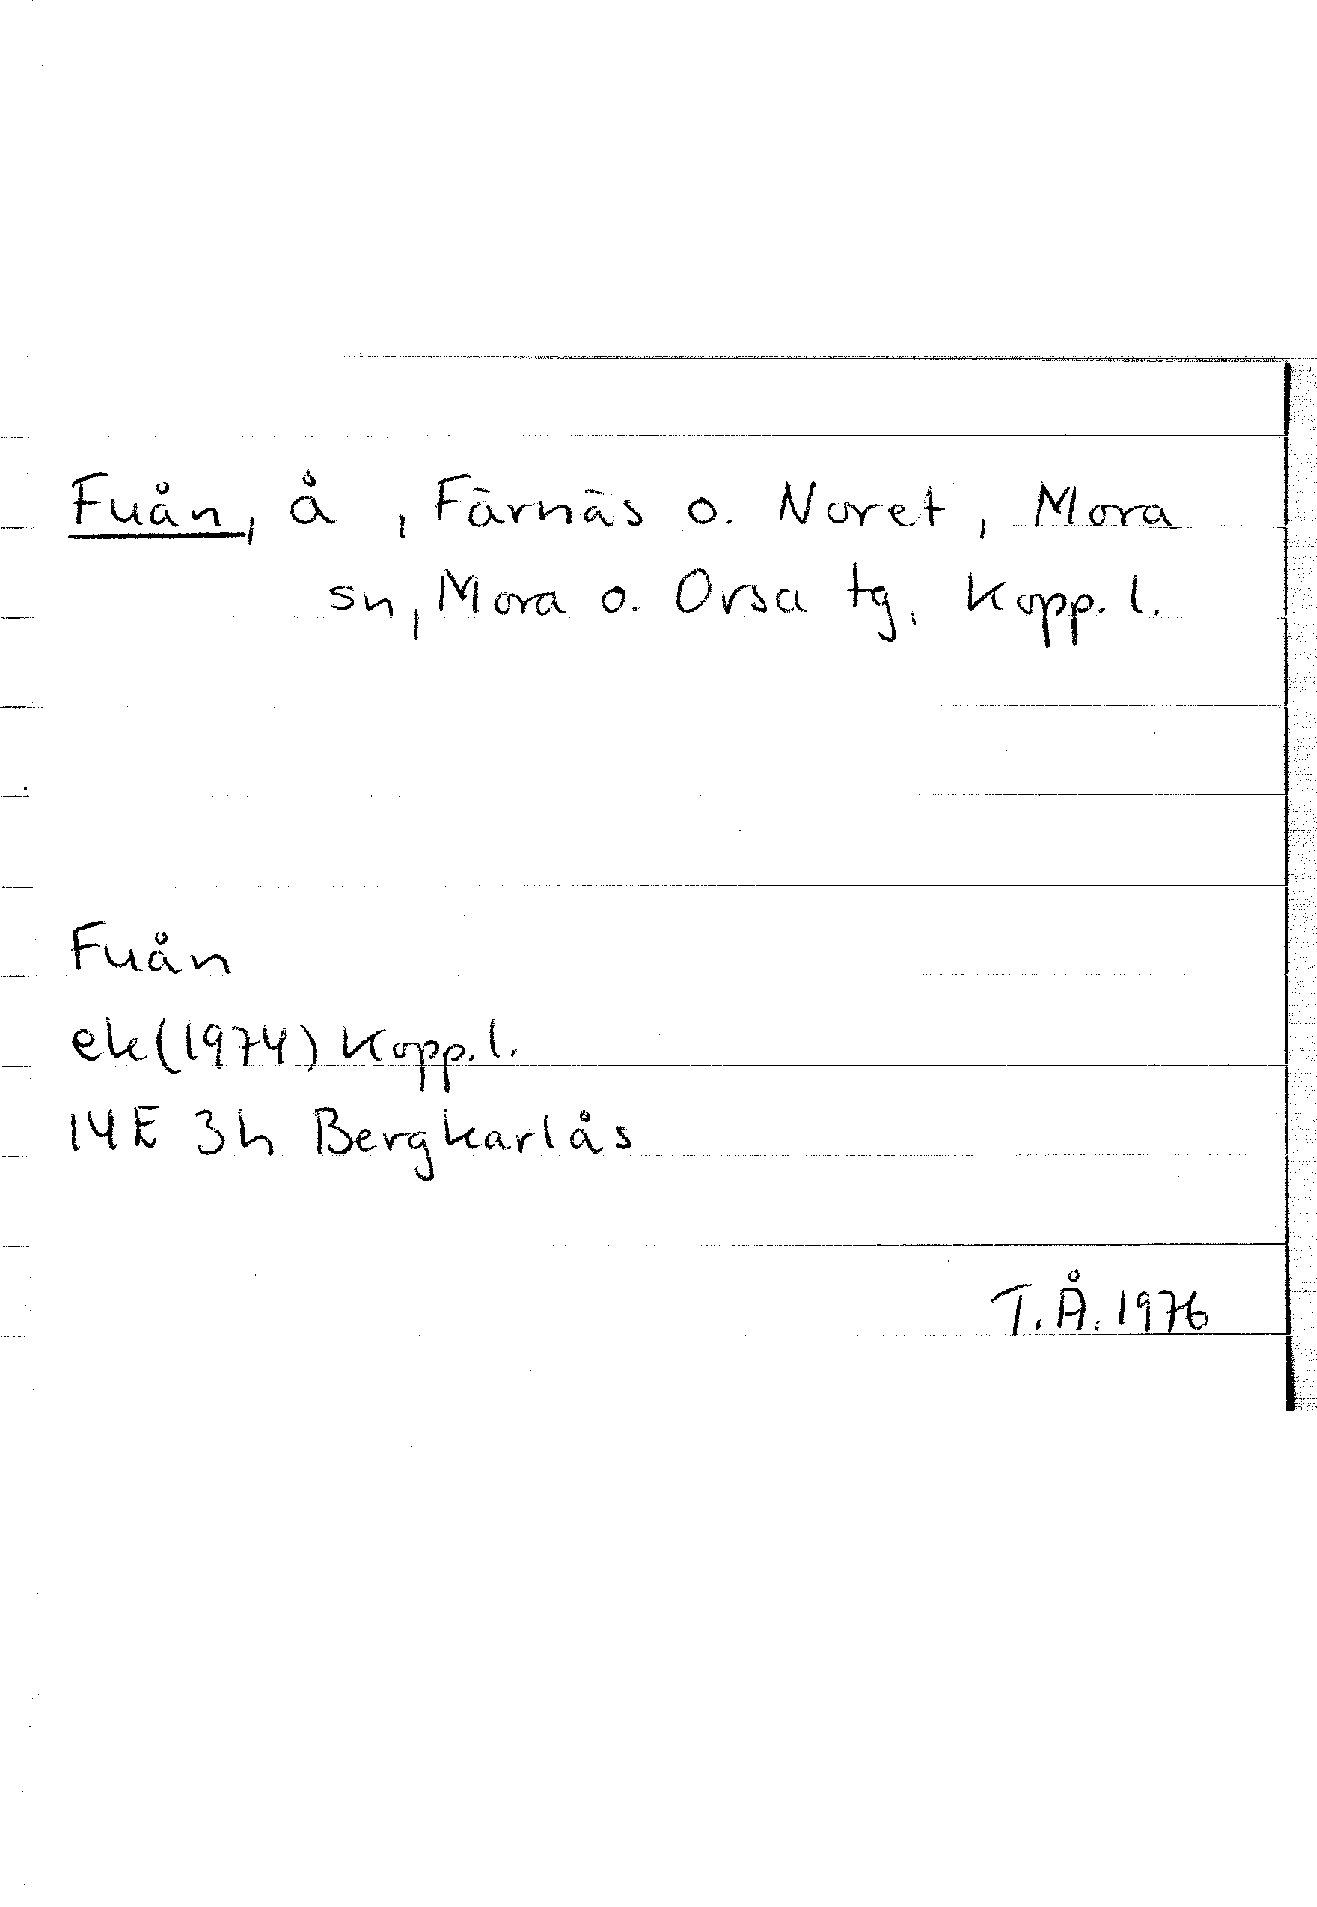 Fuån, å , Färnäs o. Noret, Mora
sn, Mora o. Orsa tg, Kopp. l.
Fuån
ek (1974) Kopp. l.
14E 3h Bergkarlås
T. Å. 1976